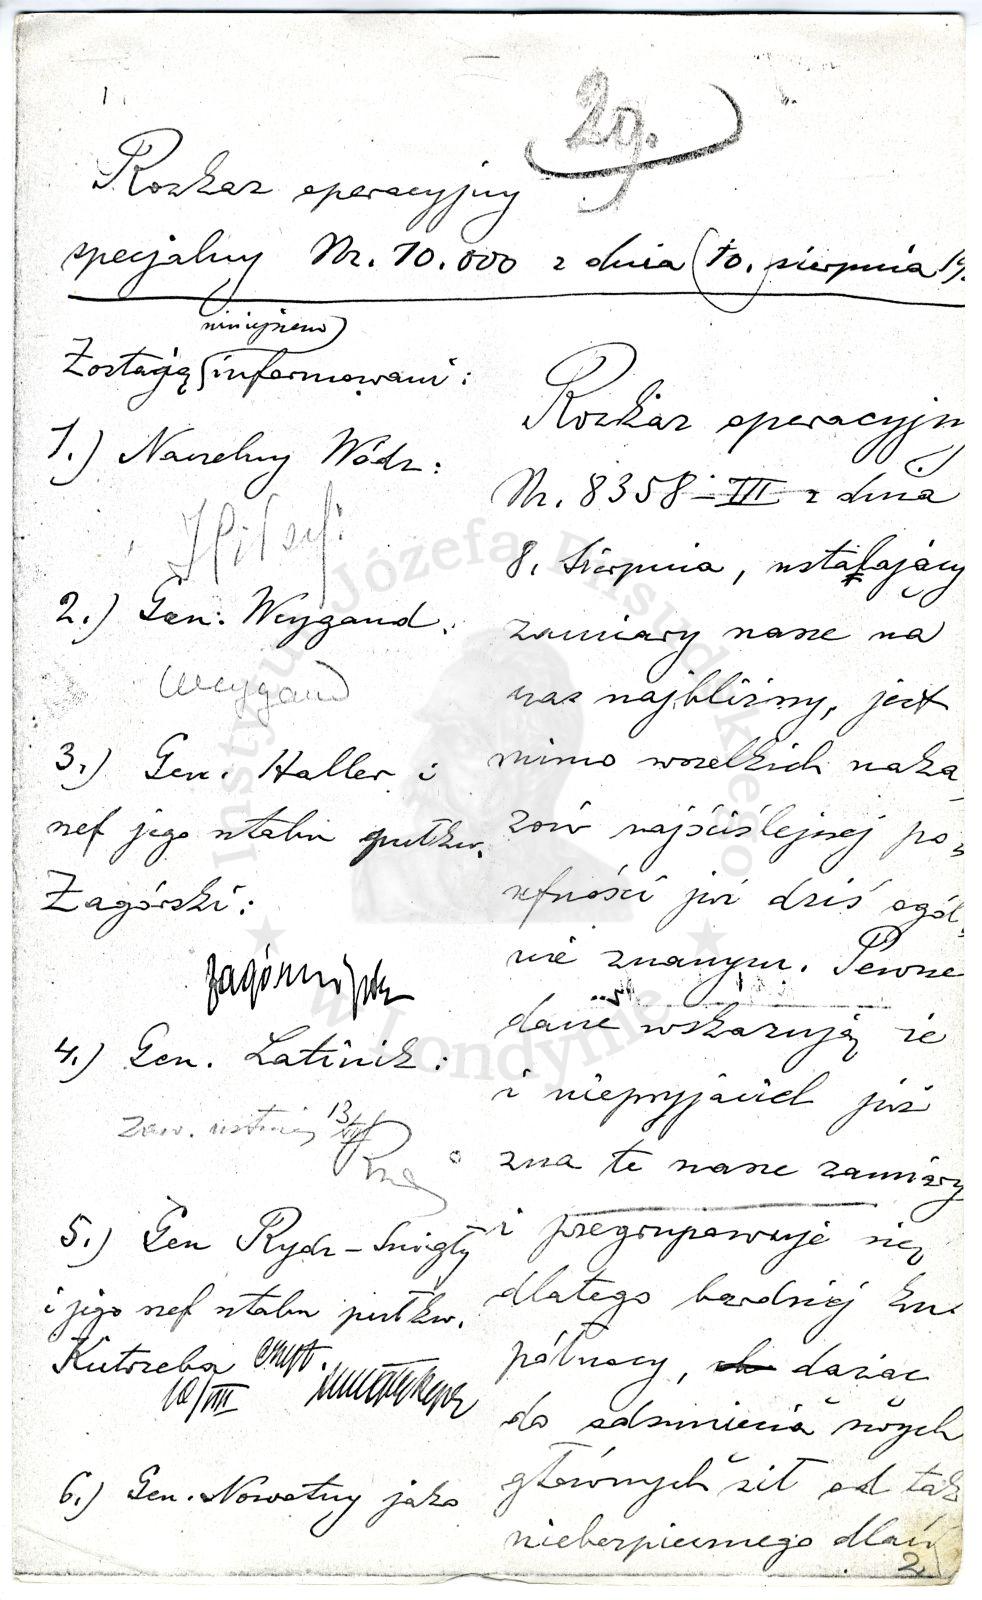 29.
Rozkaz operacyjny
specjalny Nr. 10.000 z dnia 10. sierpnia 19
niniejszem
Zostają informowani:
1.) Naczelny Wódz:
2.) Gen. Weygand:
Weygand
3.) Gen. Haller i
szef jego sztabu pułkw.
Zagórski:
Zagórski płk
4.) Gen. Latinik:
zaw. ustnie 13/VIII
5.) Gen Rydz-Śmigły
i jego szef sztabu pułkw.
Kutrzeba
10/VIII
6.) Gen. Nowotny jako
Rozkaz operacyjn
Nr. 8358-III z dnia
8. Sierpnia, ustalający
zamiary nasze na
czas najbliższy, jest
mimo wszelkich naka
zów najściślejszej po-
ufności już dziś ogól-
nie znanym. Pewne
dane wskazują że
i nieprzyjaciel już
zna te nasze zamiary
i przegrupowuje się
dlatego bardziej ku
północy, dążąc
do odsunięcia swych
głównych sił od tak
niebezpiecznego dlań
2
Instytut Józefa Piłsudskiego
w Londynie